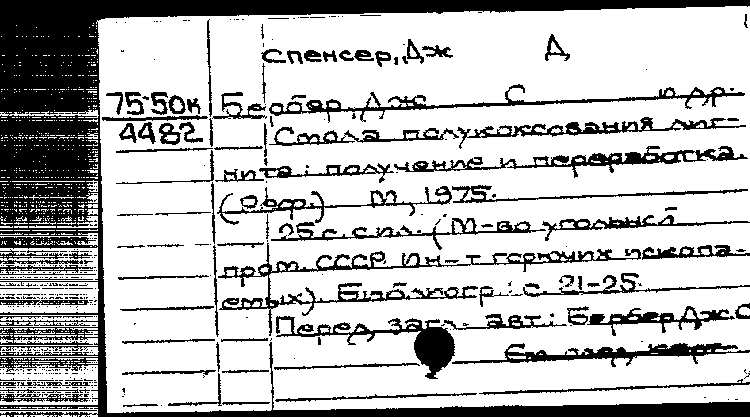 Спенсер, Дж Д,
75-50к Бербер, Дж С и др.
4482 Смола полукоксования лиг-
нита: получение и переработка.
(Реф.) М, 1975.
25 с. с ил. (М-во угольной
пром. СССР. Ин-т горючих ископа-
емых). Библиогр.: с. 21-25.
Перед загл. авт.: Бербер Дж. С
См. след. карт.